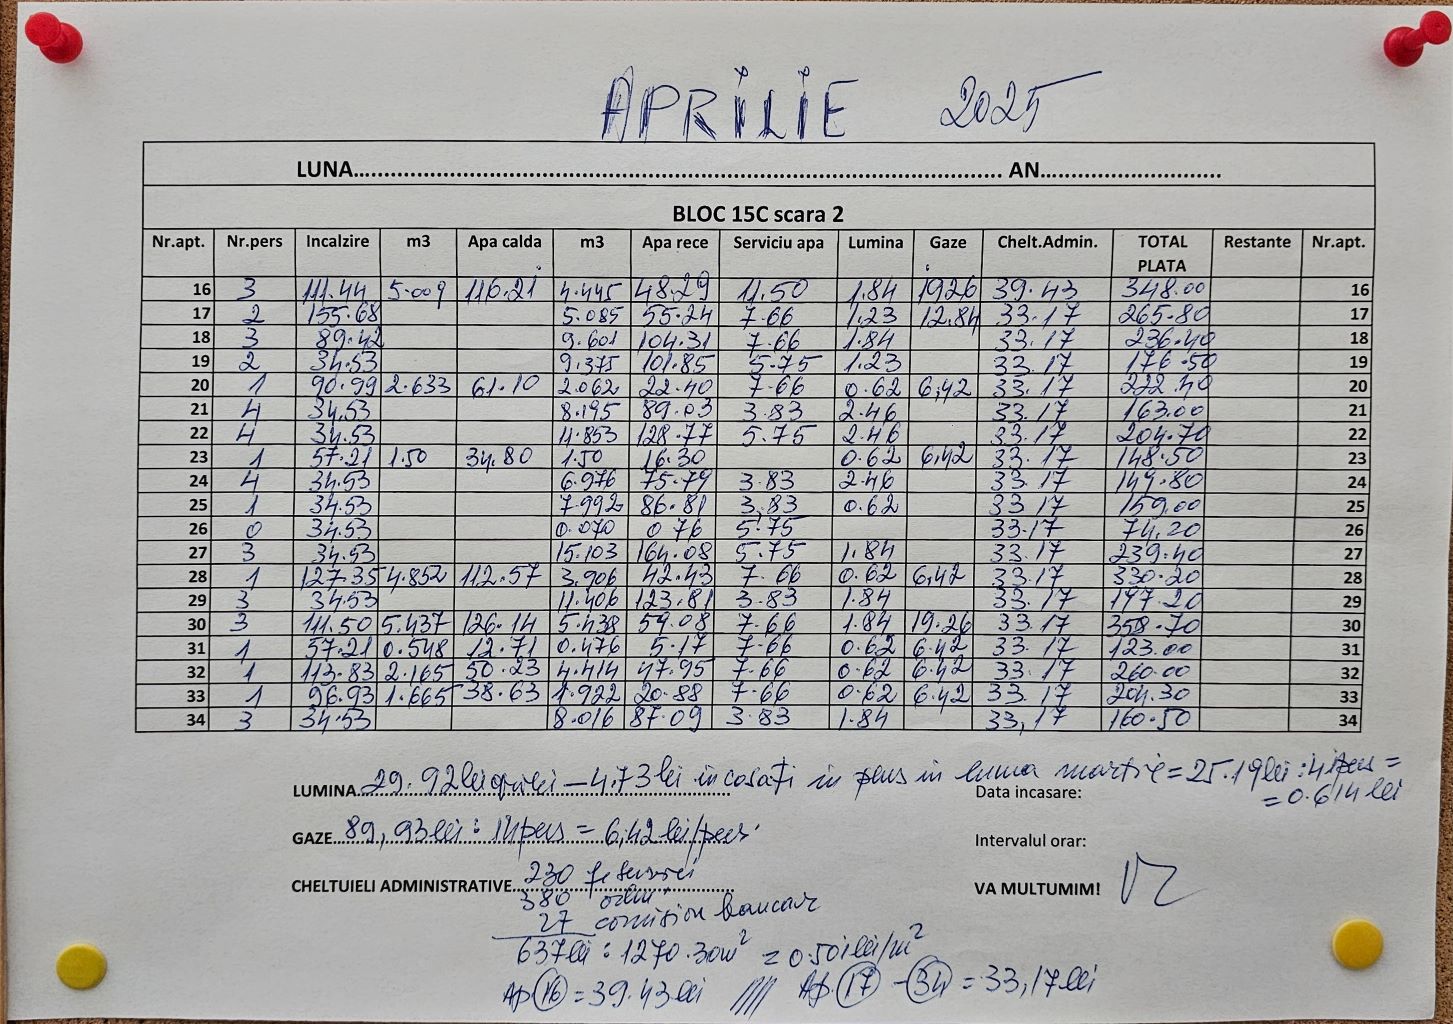 APRILIE 2025
LUNA.................... AN....................
BLOC 15C scara 2
Nr.apt. Nr.pers Incalzire m3 Apa calda m3 Apa rece Serviciu apa Lumina Gaze Chelt.Admin. TOTAL PLATA Restante Nr.apt.
16 3 111.44 5.009 116.21 4.445 48.29 11.50 1.84 1926 39.43 348.00 16
17 2 155.68 5.085 55.24 7.66 1.23 12.84 33.17 265.80 17
18 3 89.42 9.601 104.31 7.66 1.84 33.17 236.40 18
19 2 34.53 9.375 101.85 5.75 1.23 33.17 176.50 19
20 1 90.99 2.633 61.10 2.062 22.40 7.66 0.62 6,42 33.17 222.40 20
21 4 34.53 8.195 89.03 3.83 2.46 33.17 163.00 21
22 4 34.53 11.853 128.77 5.75 2.46 33.17 204.70 22
23 1 57.21 1.50 34.80 1.50 16.30 0.62 6,42 33.17 148.50 23
24 4 34.53 6.976 75.79 3.83 2.46 33.17 149.80 24
25 1 34.53 7.992 86.81 3.83 0.62 33.17 159.00 25
26 0 34.53 0.070 0.76 5.75 33.17 74,20 26
27 3 34.53 15.103 164.08 5.75 1.84 33.17 239.40 27
28 1 127.35 4.852 112.57 3.906 42.43 7.66 0.62 6,42 33.17 330.20 28
29 3 34.53 11.406 123.81 3.83 1.84 33.17 197.20 29
30 3 111.50 5.437 126.14 5.438 59.08 7.66 1.84 19.26 33.17 358.70 30
31 1 57.21 0.548 12.71 0.476 5.17 7.66 0.62 6.42 33.17 123.00 31
32 1 113.83 2.165 50.23 4.414 47.95 7.66 0.62 6.42 33.17 260.00 32
33 1 96.93 1.665 38.63 1.922 20.88 7.66 0.62 6.42 33.17 204.30 33
34 3 34.53 8.016 87.09 3.83 1.84 33,17 160.50 34
LUMINA 29.92 lei – 4.73 lei incasați in plus in luna martie = 25.19 lei : 41 pers =
= 0.614 lei
Data incasare:
GAZE 89,93 lei : 14 pers = 6,42 lei/pers
Intervalul orar:
CHELTUIELI ADMINISTRATIVE 230
VA MULTUMIM!
380
27 comision bancar
637 lei : 1270.30 m² = 0.501 lei/m²
Ap 16 = 39.43 lei //// Ap. 17 - 34 = 33,17 lei